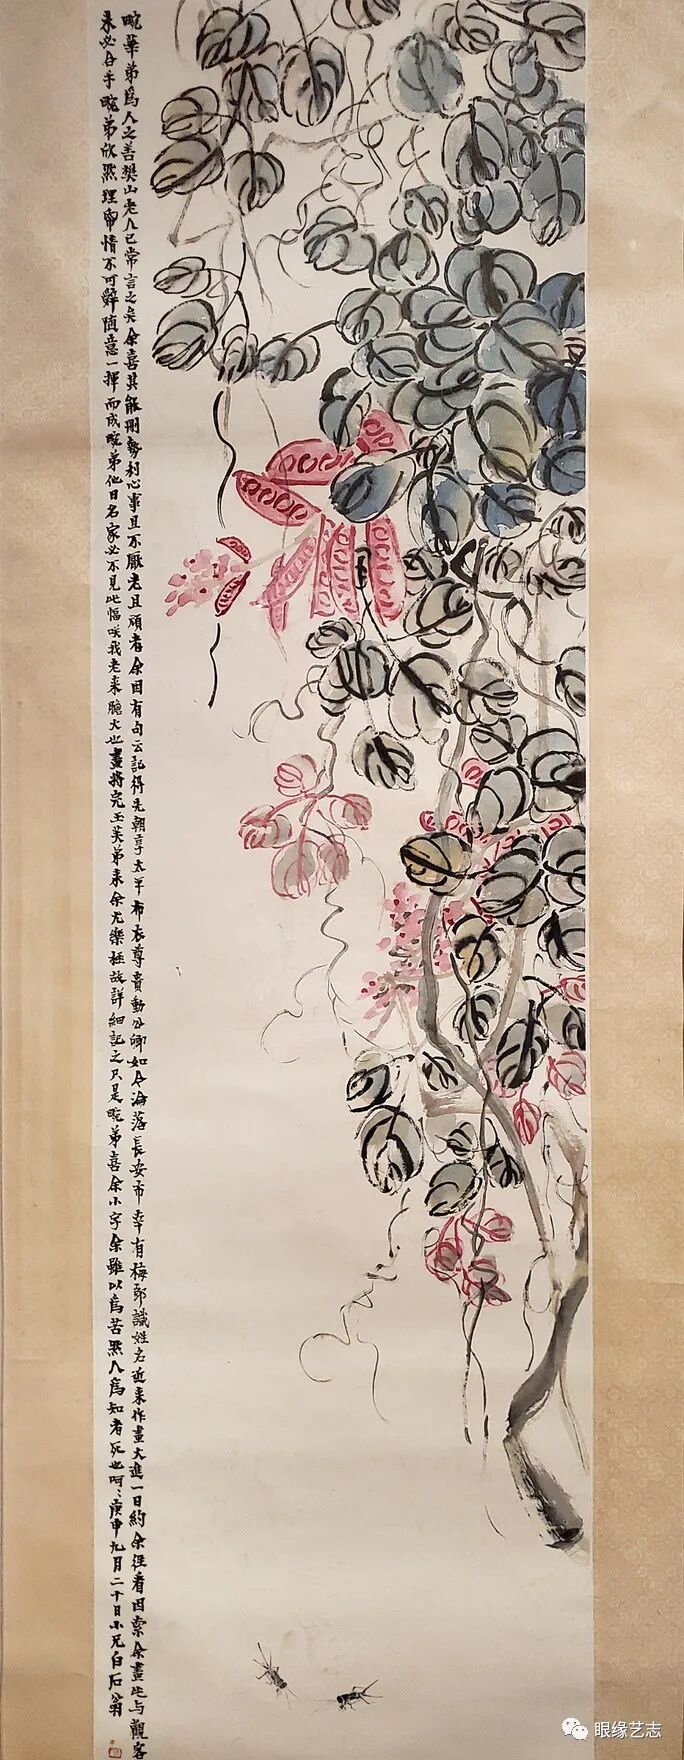 畹華弟為人之善樊山老人已常言之矣余喜其能刪勢利心事且不厭老且頑者余因有句云記得先朝享太平布衣尊貴動公卿如今淪落長安市幸有梅郎識姓名近來作畫大進一日約余徑看因索余畫此与觀客
未必合手畹弟欣然理帋情不可辭隨意一揮而成畹弟他日名家必不見此幅咲我老来膽大也畫將完玉芙弟来余尤樂極故詳細記之只是畹弟喜余小字余雖以為苦黑人為知者死也呵〻庚申九月二十日小兄白石翁
眼缘艺志